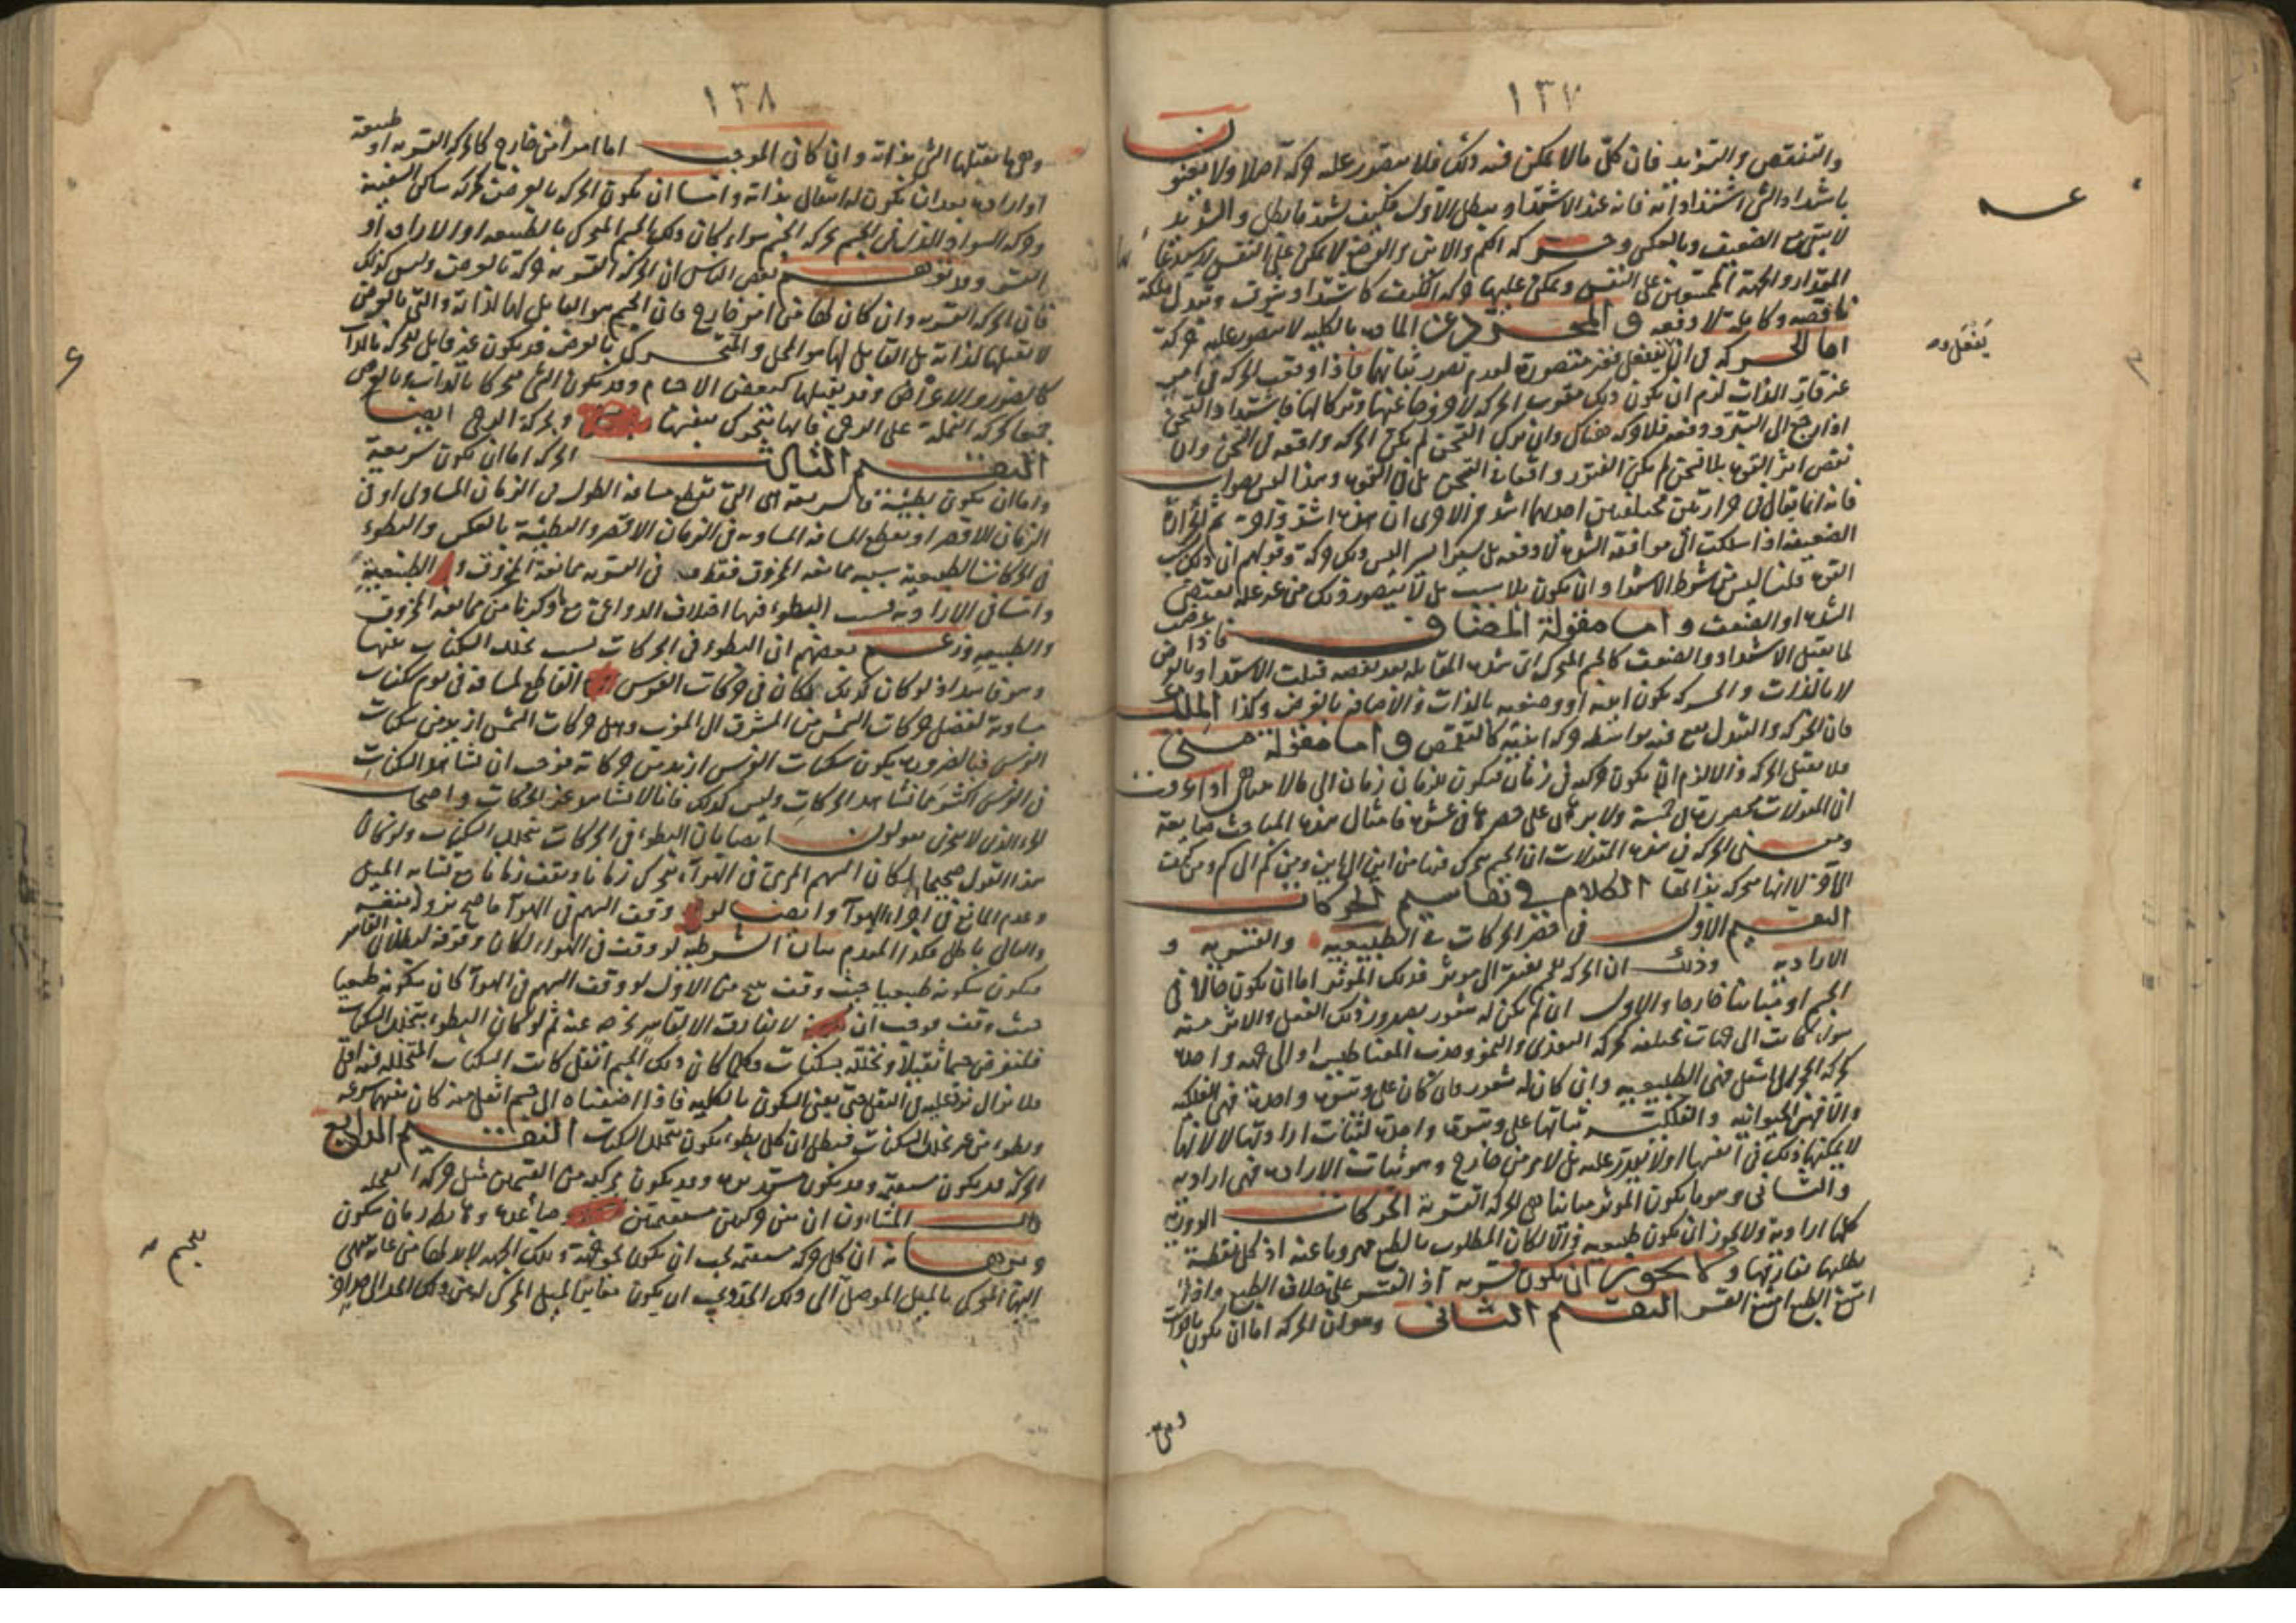 ١٣٧
والتنقص والتزيد فان كل مالا يمكن فيه ذلك فلا يتصور عليه حركة اصلا ولا يعنون
باشتداد الشئ اشتداد ذاته فانه عند الاشتداد يبطل الاول فكيف يشتد ما بطل والشديد
لا يبقى مع الضعيف وبالعكس وحركة الكم والاين والوضع لا يمكن على النفس
المقدار والجهة على النفس ويمكن عليها حركة الكيف كاشتداد شوق وتبدل ملكة
ناقصة وكاملة لا دفعه والمجرد عن المادة بالكلية لا يتصور عليه حركة
اما الحركة في ان ينفعل فغير متصورة لعدم تصور ثباتها فاذا وقعت الحركة في امر
غير قار الذات لزم ان يكون ذلك
اذا رجع الى التبرد دفعه فلا حركة هناك وان ترك التسخن لم يكن الحركة واقعه في التسخن وان
نقص اثر القوة بلا تسخن لم يكن الفتور واقعا في التسخن بل في القوة وهذا ليس بصواب
فانه انما يقال في حرارتين مختلفتين احدهما اشد من الاخرى ان هذه اشد
الضعيفة اذا سلكت الى موافقة الشدة لا دفعه بل يسيرا يسيرا ليس ذلك حركة وقولهم ان ذلك بسبب
القوة قلنا ليس من شرط الاشتداد ان يكون بلا سبب بل لا يتصور ذلك من غير علة تقتضي
الشدة او الضعف واما مقولة المضاف فاذا عرضت
لما يقبل الاشتداد والضعف كالجسم المتحرك الى شدة المقابلة بعد نقصه قبلت الاشتداد بالعرض
لا بالذات والحركة يكون اينية او وضعية بالذات والاضافة بالعرض وكذا الملك
فان الحركة والتبدل يقع فيه بواسطة حركة اينية كالتقمص واما مقولة متى
فلا يقبل الحركة والا لزم ان يكون حركة في زمان فيكون للزمان زمان الى مالا يتناهى واذا عرفت
ان المقولات محصورة في خمسة ولا برهان على حصرها في عشرة فامثال هذه المباحث ضايعة
ومعنى الحركة في هذه المقولات ان الجسم يتحرك فيها من اين الى اين ومن كم الى كم ومن كيف
الى اخر لا انها متحركة بذاتها الكلام في تقاسيم الحركات
التقسيم الاول في حصر الحركات في الطبيعية والقسرية و
الارادية وذلك ان الحركة للجسم تفتقر الى موثر فذلك الموثر اما ان يكون حالا في
الجسم او مباينا خارجا والاول ان لم يكن له شعور بصدور ذلك الفعل والاثر منه
سواء كانت الى جهات مختلفة كحركة التغذى والنمو وجذب المغناطيس او الى جهة واحدة
كحركة الحجر الى اسفل فهى الطبيعية وان كان له شعور فان كان على وتيرة واحدة فهى الفلكية
والا فهى الحيوانية والفلكيات ثباتها على وتيرة واحدة لثبات ارادتها لا لانها
لا يمكنها ذلك في انفسها او لا تقدر عليه بل لامر من خارج وهو ثبات الارادة فهى ارادية
والثاني وهو ما يكون الموثر مباينا هى الحركة القسرية الحركات الدورية
كلها ارادية ولا يجوز ان يكون طبيعية والا لكان المطلوب بالطبع مهروبا عنه اذ كل نقطة
يطلبها يفارقها ولا يجوز ان يكون قسرية اذ القسر على خلاف الطبع واذا
امتنع الطبع امتنع القسر التقسيم الثاني وهو ان الحركة اما ان يكون بالذات
ينفعل
وهي
١٣٨
وهى ما يقبلها الشئ بذاته وان كان الموجب اما امر من خارج كالحركة القسرية او طبيعة
او ارادة بعد ان يكون له انتقال بذاته واما ان يكون الحركة بالعرض كحركة ساكن السفينة
وحركة السواد الذى فى الجسم بحركة الجسم سواء كان ذلك الجسم المتحرك بالطبيعة او الارادة او
القسر ولا تتوهم بعض الناس ان الحركة القسرية حركة بالعرض وليس كذلك
فان الحركة القسرية وان كان من امر خارج فان الجسم هو القابل لها لذاته والتى بالعرض
لا يقبلها لذاته بل القابل لها هو المحل والمتحرك بالعرض قد يكون غير قابل للحركة بالذات
كالصور والاعراض وقد يقبلها كبعض الاجسام وقد يكون الشئ متحركا بالذات وبالعرض
جميعا كحركة النملة على الرحى فانها تتحرك بنفسها وبحركة الرحى ايضا
التقسيم الثالث الحركة اما ان يكون سريعة
واما ان يكون بطيئة فالسريعة هى التى تقطع مسافة اطول فى الزمان المساوى او فى
الزمان الاقصر او يقطع المسافة المساوية فى الزمان الاقصر والبطيئة بالعكس والبطوء
فى الحركات الطبيعية سببه ممانعة المخروق فقط و فى القسرية ممانعة المخروق والطبيعة
واما فى الارادية فسبب البطوء فيها اختلاف الدواعى مع ما ذكرنا من ممانعة المخروق
والطبيعة وزعم بعضهم ان البطوء فى الحركات بسبب تخلل السكنات بينها
وهو فاسد اذ لو كان كذلك لكان فى حركات الفرس القاطع لمسافة فى يوم سكنات
مساوية لفضل حركات الشمس من المشرق الى المغرب وهل حركات الشمس ازيد من سكنات
الفرس فبالضرورة يكون سكنات الفرس ازيد من حركاته فوجب ان نشاهد السكنات
فى الفرس اكثر مما نشاهد الحركات وليس كذلك فانا لا نشاهد غير الحركات واصحاب
الجزء الذى لا يتجزى يقولون ايضا بان البطوء فى الحركات بتخلل السكنات ولو كان
هذا القول صحيحا لكان السهم المرمى فى الهواء يتحرك زمانا ويقف زمانا مع تشابه الميل
وعدم المانع فى اجزاء الهوآ وايضا لو وقف السهم فى الهوآ ما صح نزوله بنفسه
والتالى باطل فكذا المقدم بيان الشرطية لو وقف فى الهواء لكان وقوفه لبطلان القاسر
فيكون سكونه طبيعيا حيث وقف مع من الاول لو وقف السهم فى الهوآ كان سكونه طبيعيا
حيث وقف فوجب ان لا يفارقه الا بقاسر يخرجه عنه ثم لو كان البطوء بتخلل السكنات
فلنفرض جسما ثقيلا ونخلله بسكنات فكلما كان ذلك الجسم اثقل كانت السكنات المتخللة فيه اقل
فلا نزال نزيد عليه فى الثقل حتى يفنى السكون بالكلية فاذا اضفناه الى جسم اثقل منه كان بينهما سرعة
وبطوء من غير تخلل السكنات فبطل ان كل بطوء يكون بتخلل السكنات التقسيم الرابع
الحركة قد يكون مستقيمة وقد يكون مستديرة وقد يكون مركبة من القسمين مثل حركة العجلة
قال المشاؤون ان بين حركتين مستقيمتين صاعدة وهابطة زمان سكون
وبرهانه ان كل حركة مستقيمة يجب ان يكون لجهة وتلك الجهة لابد لها من غاية ينتهى
اليها المتحرك بالميل الموصل الى ذلك الحد ويجب ان يكون مغايرا للميل المحرك له من ذلك الحد الى
جسم